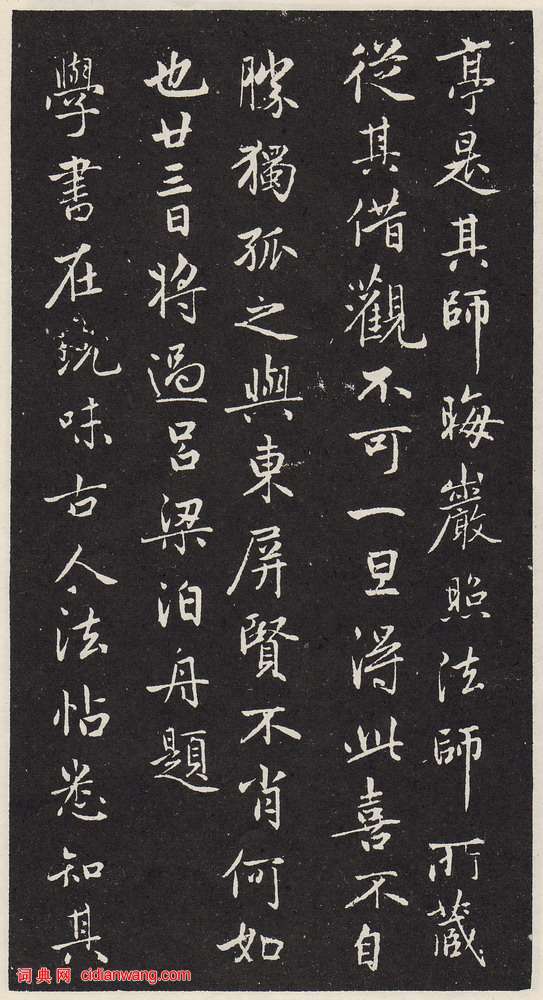 亭是其師晦巖照法師所藏
從其借觀不可一旦得此喜不自
勝獨孤之與東屏賢不肖何如
也廿三日將過呂梁泊舟題
學書在玩味古人法帖悉知其
词典网 cidianwang.com